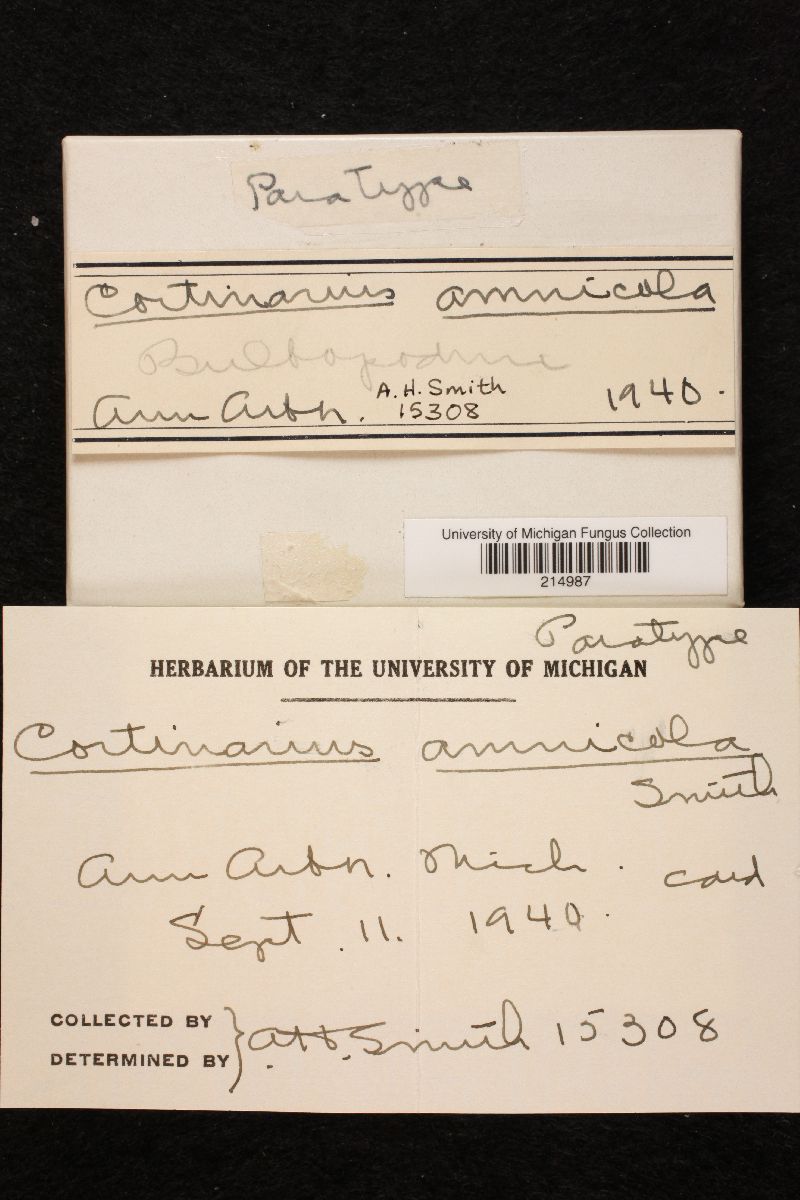 Paratype
Cortinarius amnicola
Bulbopodium
Ann Arbor. A. H. Smith 1940.
15308
University of Michigan Fungus Collection
214987
Paratype
HERBARIUM OF THE UNIVERSITY OF MICHIGAN
Cortinarius amnicola
Smith
Ann Arbor. Mich. card
Sept. 11. 1940.
COLLECTED BY
DETERMINED BY } A.H. Smith 15308